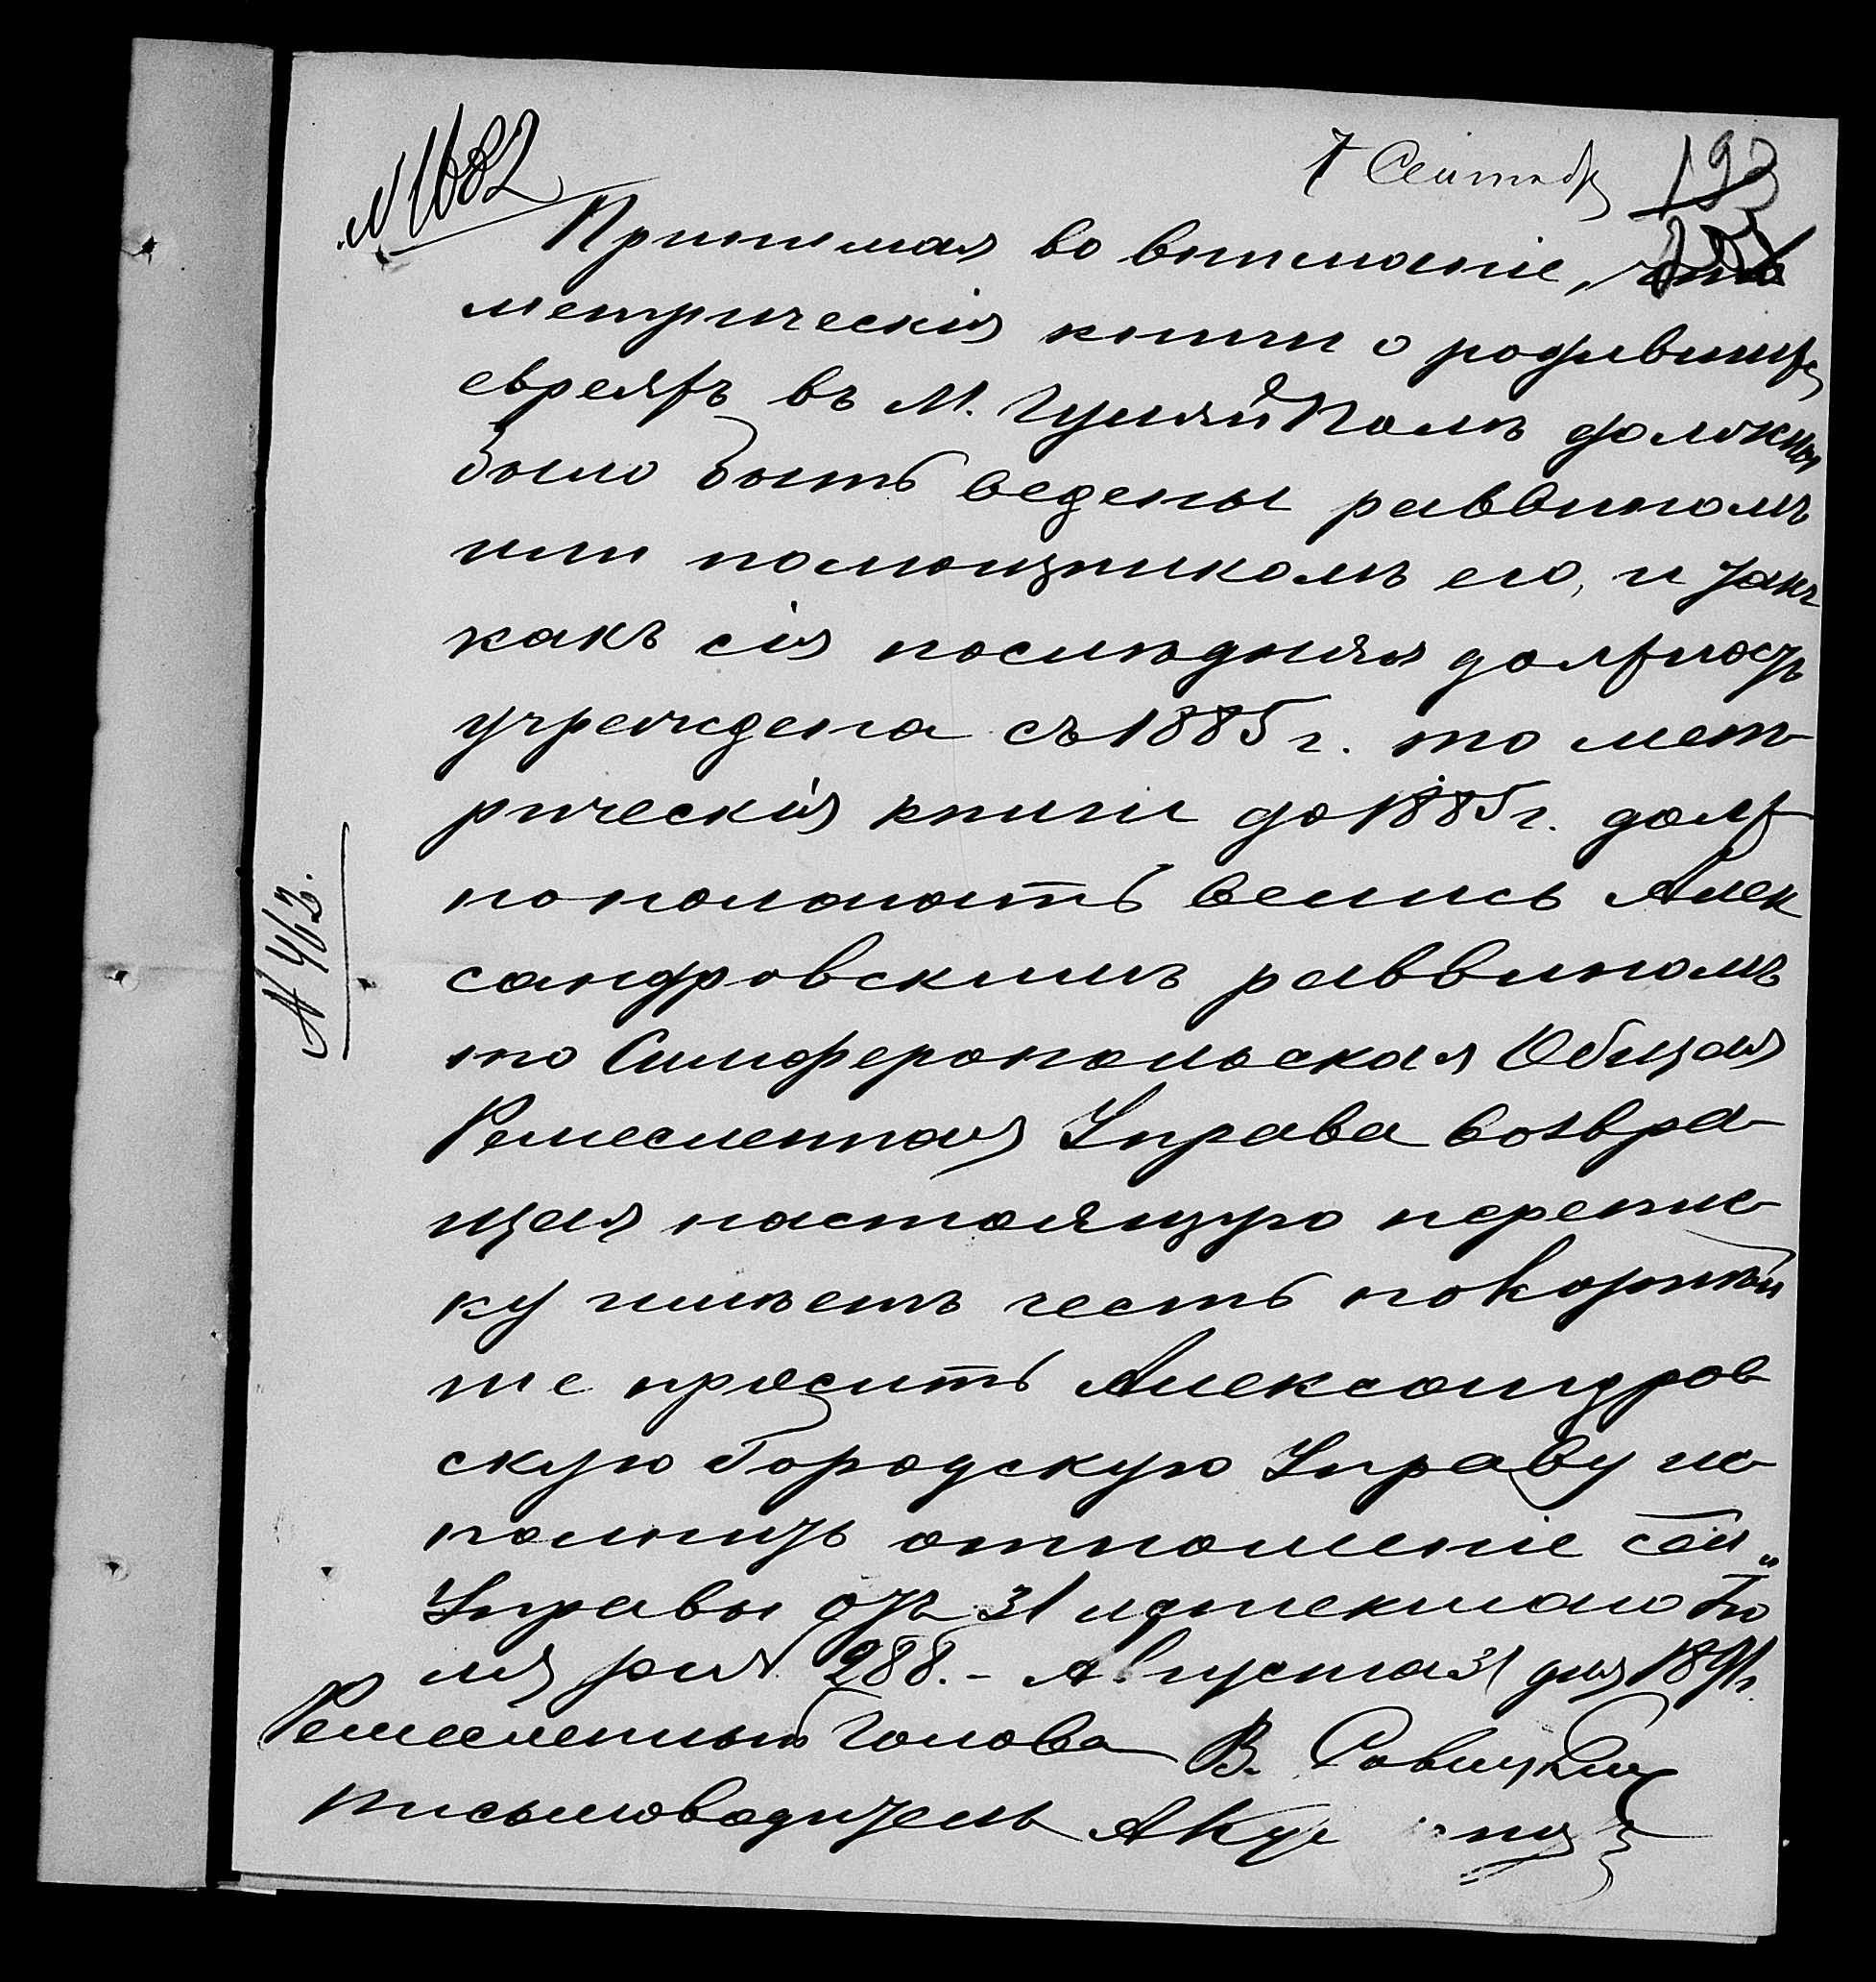 № 1682
7 Сентябр
193
Принимая во вниманіе, что
метрическія книги о родившихся
евреяхъ въ М. Гуляй Полѣ должны
было быть ведены раввиномъ
или помощникомъ его, и такъ
какъ сія послѣдняя должность
учреждена съ 1885 г. то мет
рическія книги до 1885 г. долж
но полагать велись Алек
сандровскимъ раввиномъ
то Симферопольская Общая
Ремесленная Управа возвра
щая настоящую перепис
ку имѣетъ честь покорнѣй
ше просить Александров
скую Городскую Управу ис
полнить отношеніе сей
Управы отъ 31 истекшаго Iю
ля за № 288. - Августа 31 дня 1891 г.
Ремесленный Голова В. Савицкій
Письмоводитель
№ 463.